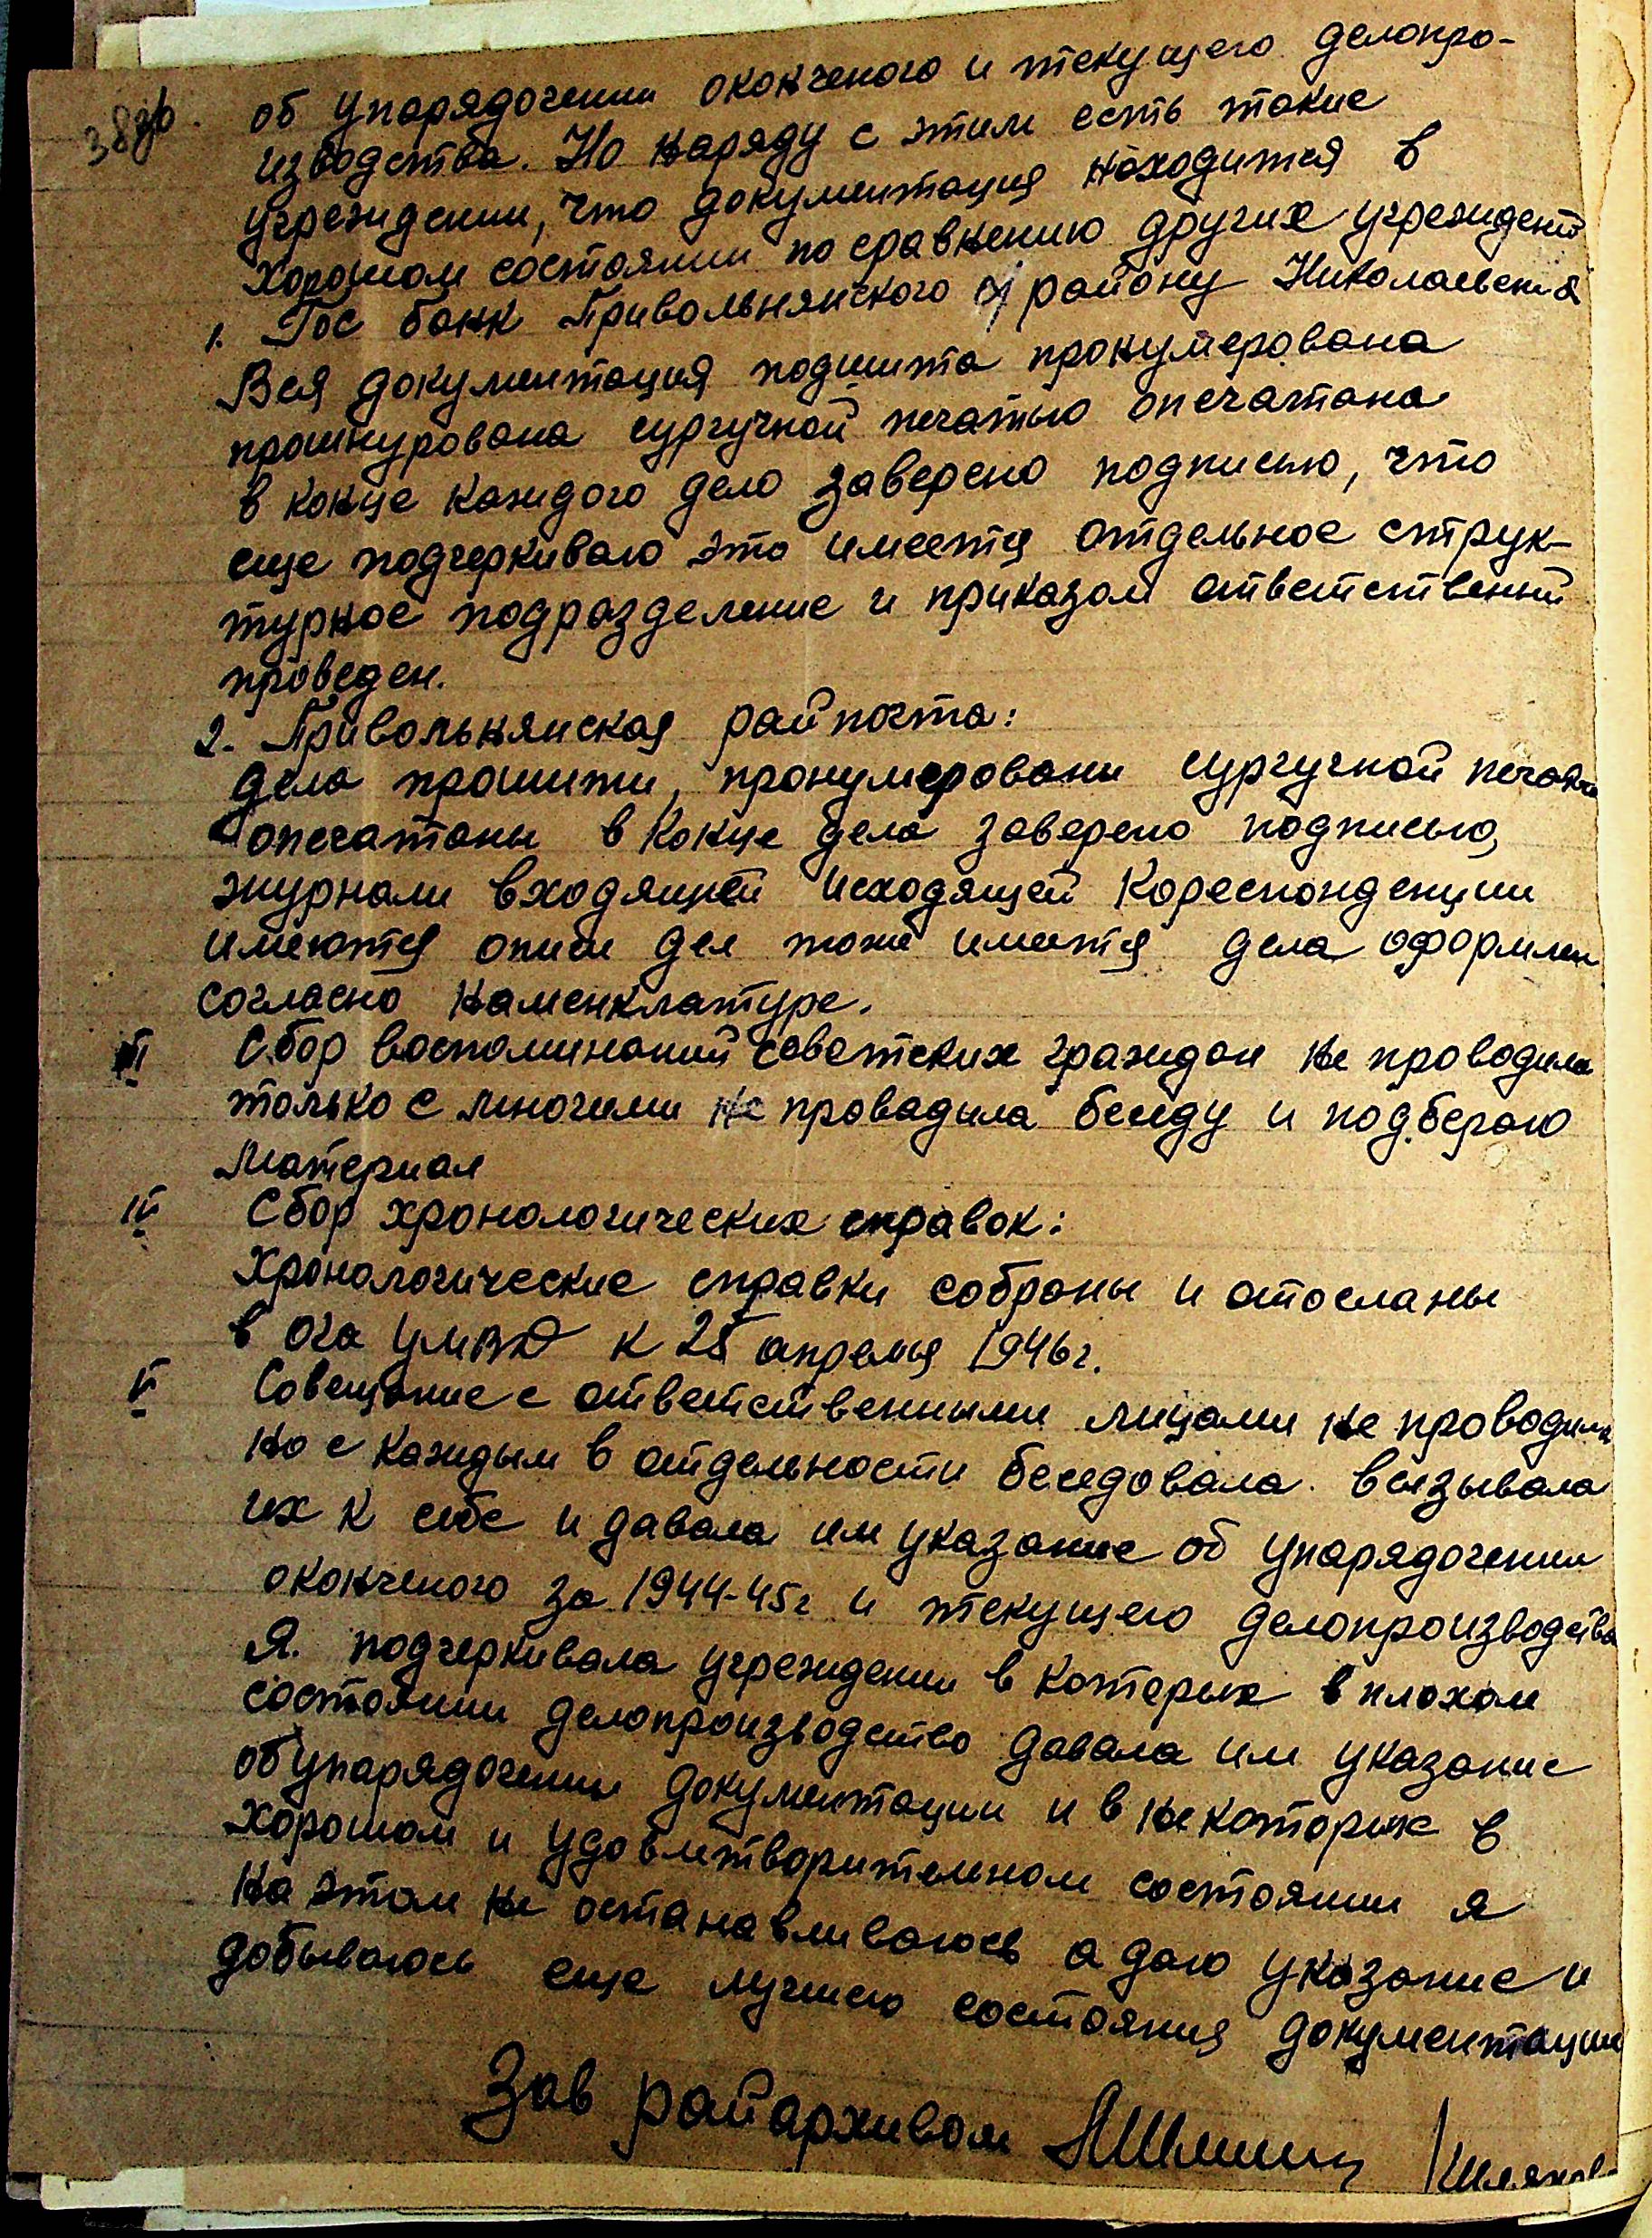 38об.
об упарядочении оконченого и текущего делопро-
изводства. Но наряду с этим есть такие
учреждении, что документация находится в
хорошом состоянии по сравнению других учреждений
1. Гос банк Привольнянского району Николаевской
Вся документация подшита пронумерована
прошнурована сургучной печатью опечатана
в конце каждого дело заверено подписью, что
еще подчеркиваю это имеется отдельное струк-
турное подразделение и приказом ответственый
проведен.
2. Привольнянская райпочта:
дела прошити, пронумеровани сургучной печатью
опечатаны в конце дела заверено подписью,
журнали входящей исходящей кореспонденции
имеются описи дел тоже имеится дела оформлен
согласно наменклатуре.
III Сбор воспоминаний советских граждан не проводила
только с многими провадила беседу и подбераю
материал
IV Сбор хронологических справок:
Хронологические справки собраны и отосланы
в ога УМВД к 25 апреля 1946г.
V Совещание с ответственными лицами не проводила
но с каждым в отдельности беседовала. Визывала
их к себе и давала им указание об упарядочении
оконченого за 1944-45г и текущего делопроизводства
Я. подчеркивала учреждении в которых в плохом
состоянии делопроизводство давала им указание
об упарядочении документации и в некоторых в
хорошом и удовлетворительном состоянии я
на этом не останавливаюсь а даю указание и
добываюсь еще лучшего состояния документации
Зав райархивом